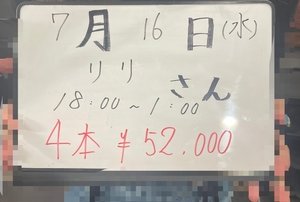 7月16日(水)
リリさん
18:00~1:00
4本 ¥52.000